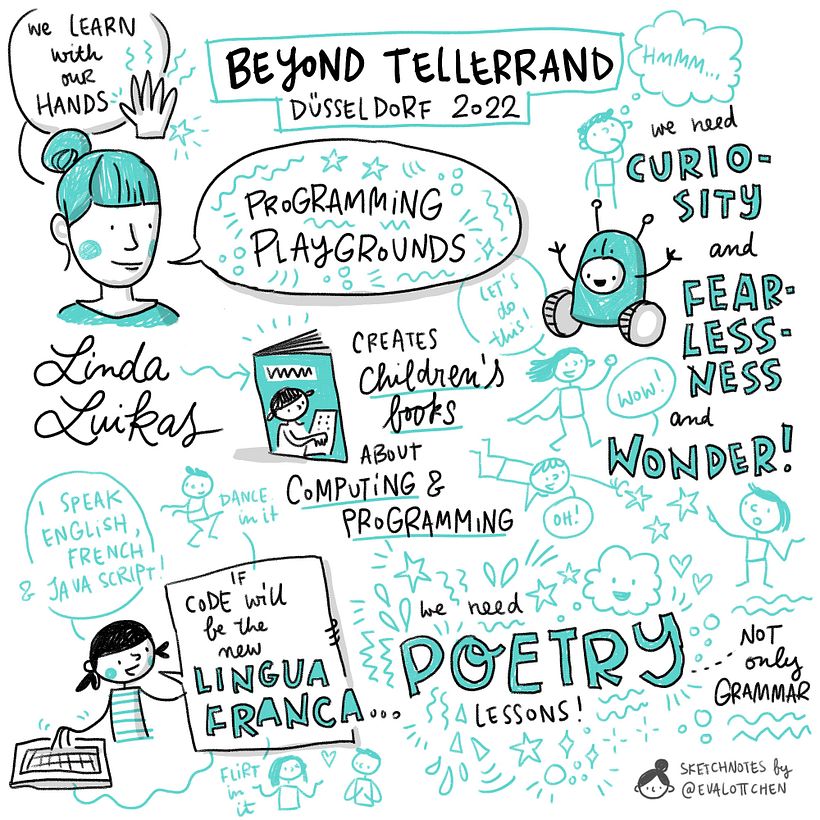 we LEARN
with
our
HANDS
BEYOND TELLERRAND
DÜSSELDORF 2022
HMMM...
we need
CURIO-
SITY
and
FEAR-
LESS-
NESS
and
WONDER!
PROGRAMMING
PLAYGROUNDS
LET'S
do
this!
WOW!
OH!
Linda
Luikas
CREATES
Children's
books
ABOUT
COMPUTING &
PROGRAMMING
I SPEAK
ENGLISH,
FRENCH
& JAVA SCRIPT!
DANCE
in it
IF
CODE will
be the
new
LINGUA
FRANCA...
FLIRT
in
it
we need
POETRY
LESSONS!
.....NOT
only
GRAMMAR
SKETCHNOTES by
@EVALOTTCHEN